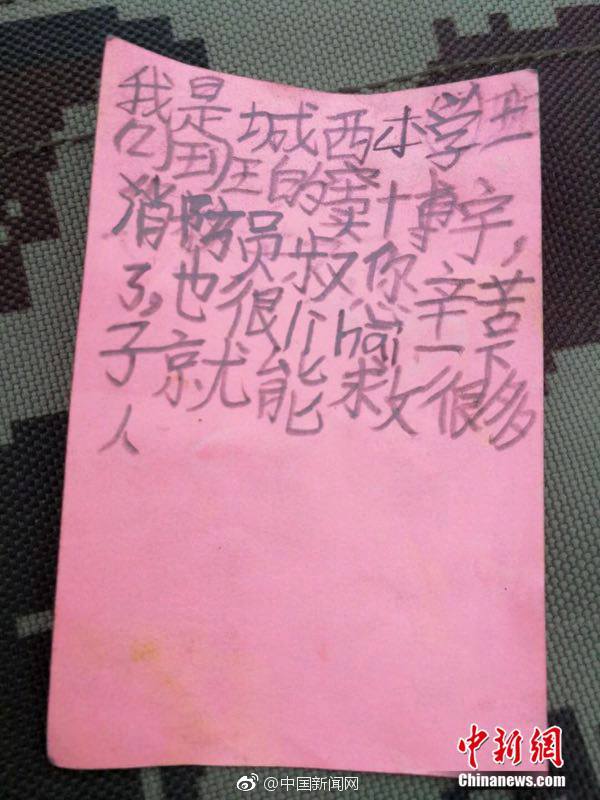 我是城西小学
班的窦博宇,
消防员叔你辛苦
了,也很li hai一下
子就能救很多
人
中新网
Chinanews.com
@中国新闻网